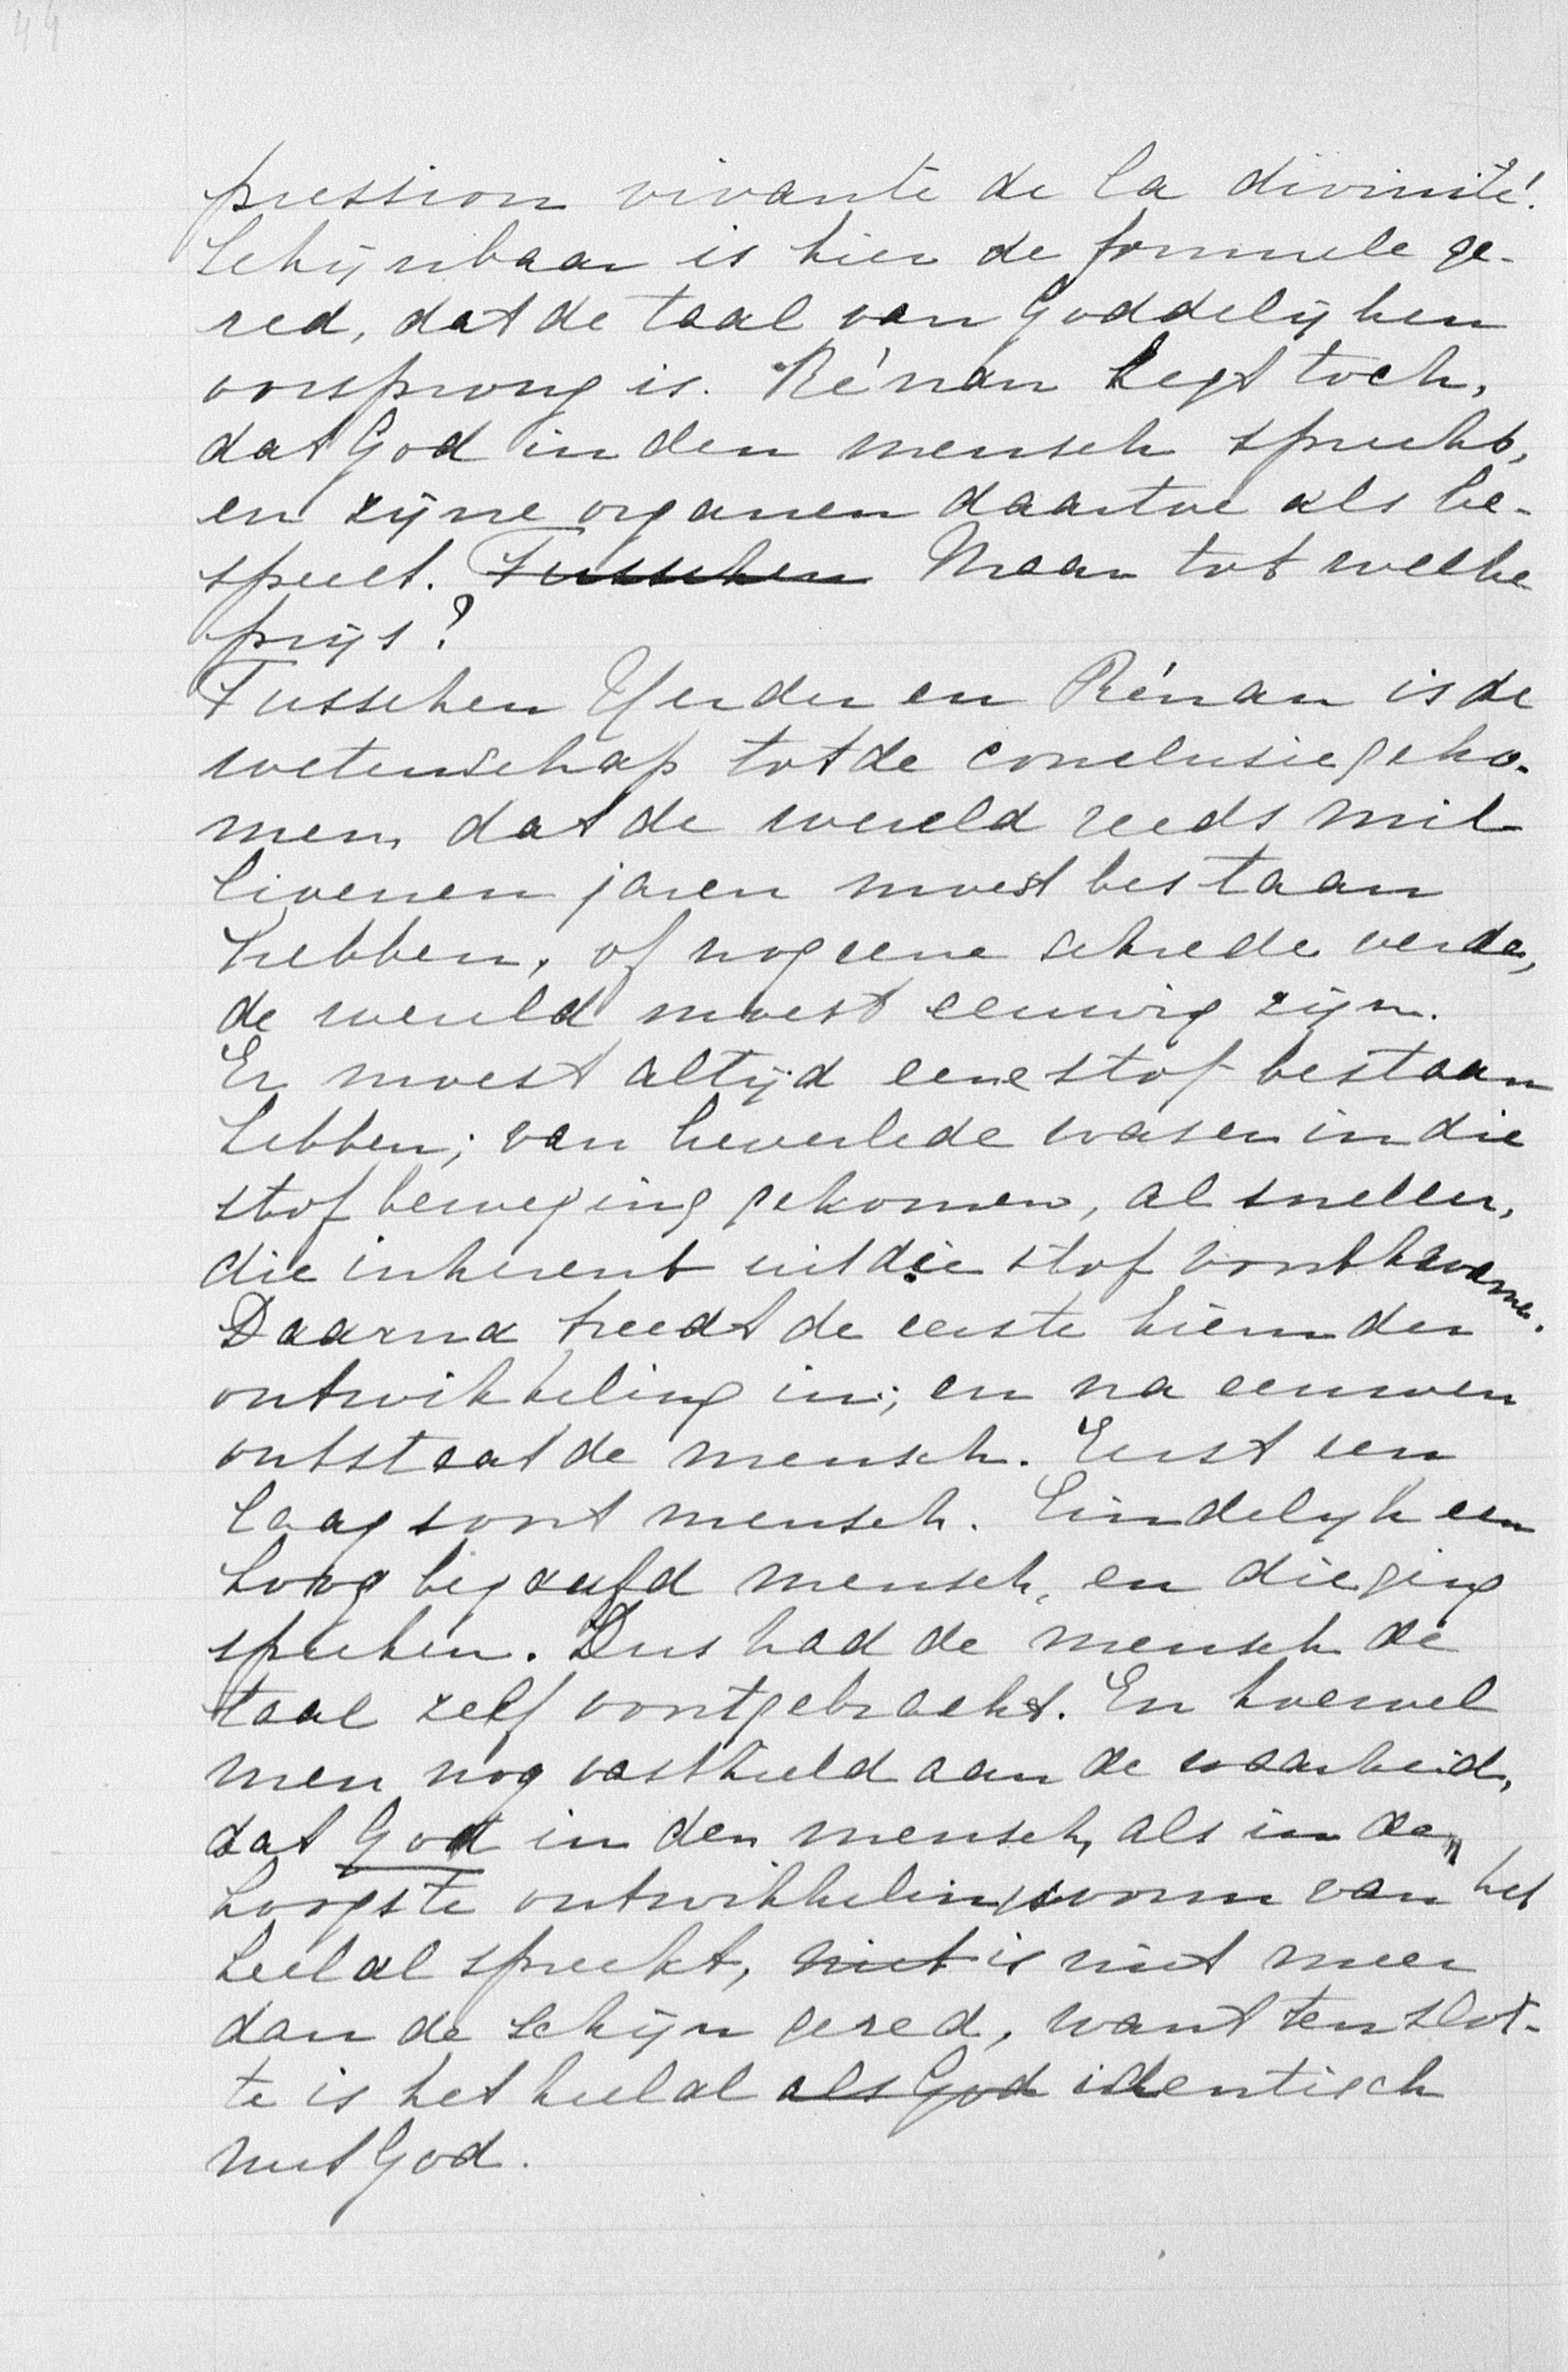 44
pression vivante de la divinité!
Schijnbaar is hier de formule ge-
red, dat de taal van Goddelijken
oorsprong is. Rénan zegt toch,
dat God in den mensch spreekt,
en zijne organen daartoe als be-
speelt. Tusschen Maar tot welke
prijs?
Tusschen Herder en Rénan is de
wetenschap tot de conclusie geko-
men, dat de wereld reeds mil-
lioenen jaren moest bestaan
hebben, of nog eene schrede verder,
de wereld moest eeuwig zijn.
Er moest altijd eene stof bestaan
hebben; van lieverlede was er in die
stof beweging gekomen, al sneller,
die inherent uit die stof voortkwame.
Daarna treedt de eerste kiem der
ontwikkeling in; en na eeuwen
ontstaat de mensch. Eerst een
laag soort mensch. Eindelijk een
hoog begaafd mensch, en die ging
spreken. Dus had de mensch de
taal zelf voortgebracht. En hoewel
men nog vasthield aan de waarheid,
dat God in den mensch, als in den
hoogste ontwikkelingsvorm van het
heelal spreekt, niet is niet meer
dan de schijn gered, want ten slot-
te is het heelal als God identisch
met God.